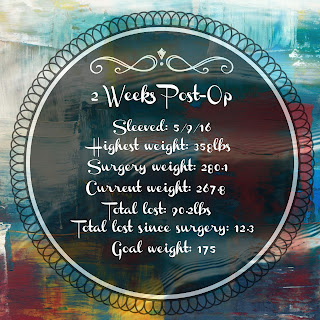 2 Weeks Post-Op
Sleeved: 5/9/16
Highest weight: 358lbs
Surgery weight: 280.1
Current weight: 267.8
Total lost: 90.2lbs
Total lost since surgery: 12.3
Goal weight: 175